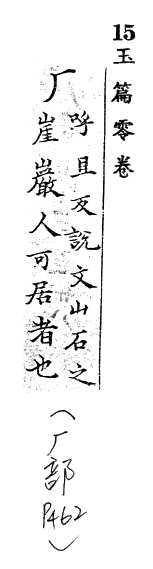 15
玉篇零卷
厂
呼且反說文山石之
崖巖人可居者也
(厂部
P462)